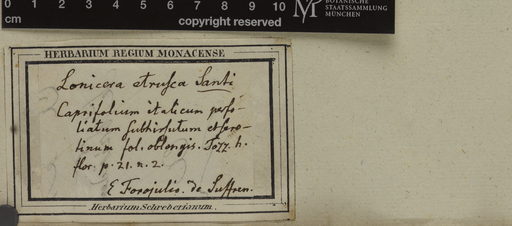 0 1 2 3 4 5 6 7 8 9 10
cm
copyright reserved
BOTANISCHE
STAATSSAMMLUNG
MÜNCHEN
HERBARIUM REGIUM MONACENSE
Lonicera etrusca Santi
Caprifolium italicum perfo-
liatum subhirsutum et sero-
tinum fol. oblongis. Tozz. h.
flor. p. 21. n. 2.
E Forojulio. de Suffren.
Herbarium Schreberianum.